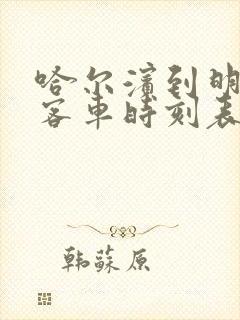 哈尔滨到明
客车时刻表
韩苏原